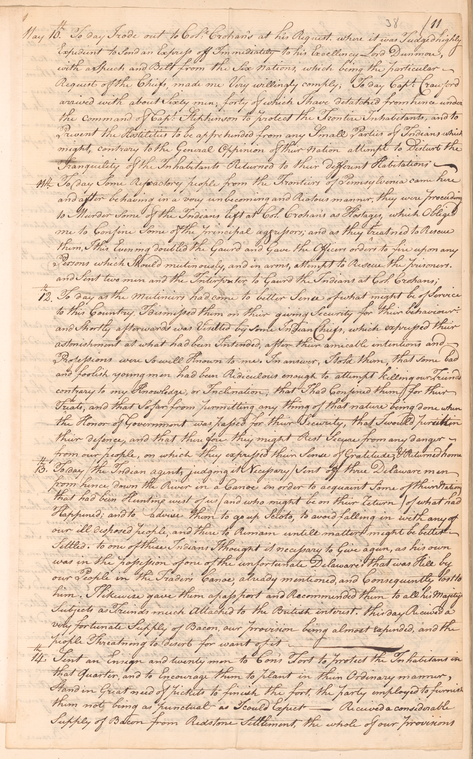 38 11
May 10th. To day I rode out to Coln. Croghans at his Request where it was Judged highly
Expedient to Send an Express off Immediately to his Excellency Lord Dunmore,
with a Speech and Belt from the Six Nations, which being the particular
Request of the Chiefs, made me Very willingly comply, To day Capt. Crawford
arived with about Sixty men, forty of which I have Detatched from hence under
the Command of Capt. Stephenson to protect the Frontier Inhabitants, and to
Prevent the Hostilities to be apprehended from any Small Parties of Indians which
might, contrary to the General Oppinion of their Nation attempt to Disturb the
Tranquility of the Inhabitants Returned to their Different Habitations
11th. To day Some Refractory people from the Frontiers of Pennsylvania came here
and after behaving in a very unbecoming and Riotous manner, they were proceeding
to Murder Some of the Indians left at Col. Croghans as Hostages, which Obliged
me to Confine Some of the principal aggressors, and as they treatned to Rescue
them, I this Evening doubled the Gaurd and Gave the Officers orders to fire upon any
Persons which Should mutinously, and in arms, attempt to Rescue the Prisoners
and Sent two men and the Interpreter to Gaurd the Indians at Col. Croghans,
12th. To day as the Mutineers had come to better Sense of what might be of Service
to this Country I Dismissed them on their giving Security for their behaviour
and Shortly afterwards was Visited by Some Indian Chiefs, which expressed their
astonishment at what had been Intended, after their amicable intentions and
Professions were So well Known to me. In answer, I told them, that Some bad
and foolish young men had been Ridiculous enough to attempt killing our Friends
contrary to my Knowledge, or Inclination, that I had Confined them for their
Treats, and that So far from permitting any thing of that nature being done when
the Honor of Government was passed for their Security, that I would perish in
their defence, and that therefore they might Rest Secure from any danger
from our people, on which they expressed their Sense of Gratitude, & Returned home
13th. To day, the Indian agents, judging it Necessary Sent off three Delaware men
from hence down the River in a Canoe in order to acquaint Some of their Nation
that had been Hunting west of us, and who might be on their Return, of what had
Happened, and to Advise them to go up to, to avoid falling in with any of
our ill disposed people, and there to Remain untill matters might be better
Settled. to one of these Indians I thought it necessary to Give a gun, as his own
was in the possession of one of the unfortunate Delawares that was Kill'd by
our People in the Traders Canoe, already mentioned, and Consequently lost to
him. I likewise gave them a passport and Recommended them to all his Majestys
Subjects as Friends much Attached to the British interest. this day Received a
very fortunate Supply of Bacon, our provision being almost expended, and the
people Threatning to desert for want of it.
14th. Sent an Ensign and twenty men to Cons Fort to Protect the Inhabitants in
that Quarter, and to Encourage them to plant in their Ordinary manner,
Stand in Great need of Pickets to finish the fort, the party employed to furnish
them not being as punctual as I could Expect — Received a considerable
Supply of Bacon from Redstone Settlement, the whole of our Provisions